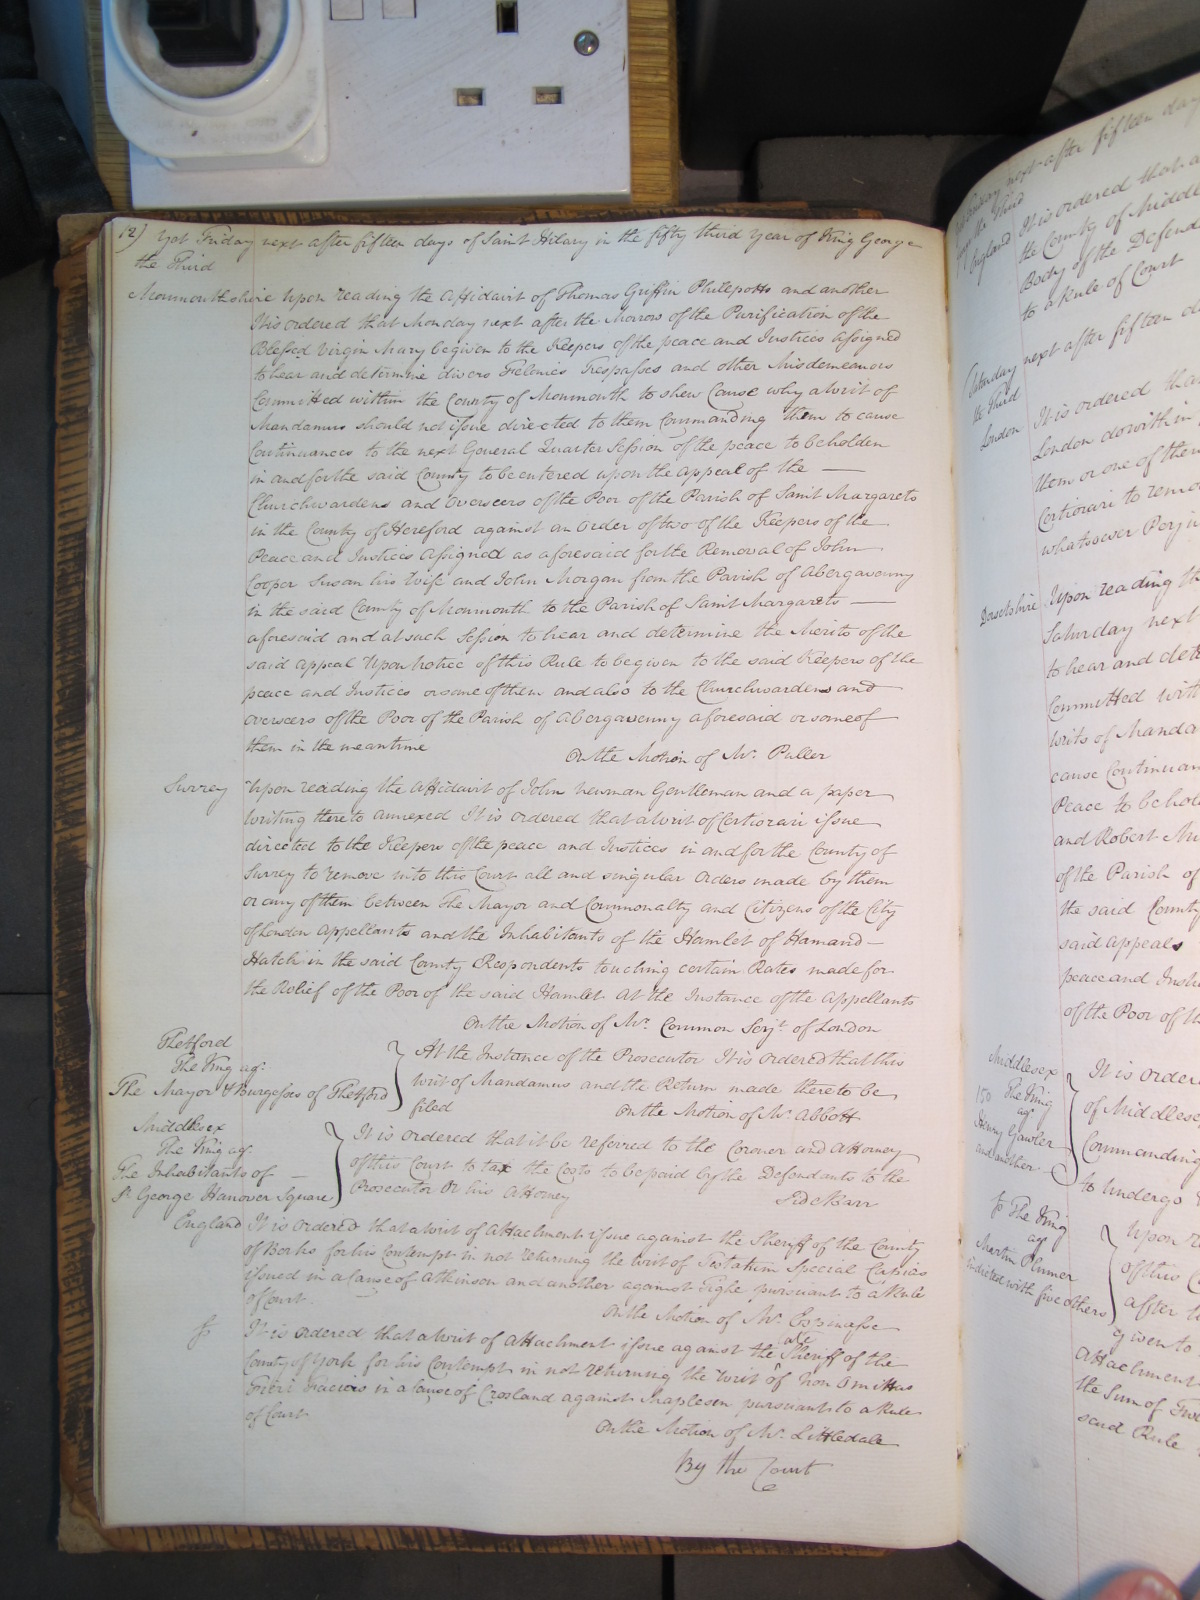 12) Yet Friday next after fifteen days of Saint Hilary in the fifty third Year of King George
the Third
Monmouthshire Upon reading the Affidavit of Thomas Griffin Philpotts and another
It is ordered that Monday next after the Morrow of the Purification of the
Blessed Virgin Mary be given to the Keepers of the peace and Justices assigned
to hear and determine divers Felonies Trespasses and other Misdemeanors
Committed within the County of Monmouth to shew Cause why a Writ of
Mandamus should not issue directed to them Commanding them to cause
Continuances to the next General Quarter Session of the peace to be holden
in and for the said County to be entered upon the appeal of the —
Churchwardens and Overseers of the Poor of the Parish of Saint Margarets
in the County of Hereford against an Order of two of the Keepers of the
Peace and Justices Assigned as aforesaid for the Removal of John
Cooper Susan his Wife and John Morgan from the Parish of Abergavenny
in the said County of Monmouth to the Parish of Saint Margarets —
aforesaid and at such Session to hear and determine the Merits of the
said appeal Upon Notice of this Rule to be given to the said Keepers of the
peace and Justices or some of them and also to the Churchwardens and
Overseers of the Poor of the Parish of Abergavenny aforesaid or some of
them in the meantime
On the Motion of Mr. Puller
Surrey Upon reading the Affidavit of John Newman Gentleman and a paper
Writing thereto annexed It is ordered that a Writ of Certiorari issue
directed to the Keepers of the peace and Justices in and for the County of
Surrey to remove into this Court all and singular Orders made by them
or any of them between The Mayor and Commonalty and Citizens of the City
of London Appellants and the Inhabitants of the Hamlet of Hamand —
Hatch in the said County Respondents touching certain Rates made for
the Relief of the Poor of the said Hamlet At the Instance of the Appellants
On the Motion of Mr. Common Serjt. of London
Thetford
The King agt.
The Mayor & Burgesses of Thetford
At the Instance of the Prosecutor It is ordered that this
Writ of Mandamus and the Return made thereto be
filed
On the Motion of Mr. Abbott
Middlesex
The King agt.
The Inhabitants of —
St. George Hanover Square
It is ordered that it be referred to the Coroner and Attorney
of this Court to tax the Costs to be paid by the Defendants to the
Prosecutor Or his Attorney
Side Barr
England It is ordered that a Writ of Attachment issue against the Sheriff of the County
of Berks for his Contempt in not returning the Writ of Testatum Special Capias
issued in a Cause of Atkinson and another against Tighe pursuant to a Rule
of Court
On the Motion of Mr. Espinasse
It is ordered that a Writ of Attachment issue against the late Sheriff of the
County of York for his Contempt in not returning the Writ of Non Omittas
Fieri Facias in a Cause of Crosland against Mapleson pursuant to a Rule
of Court
On the Motion of Mr. Littledale
By the Court
next after fifteen day
the Third
England It is ordered that a
the County of Middle
Body of the Defend
to a Rule of Court
Saturday next after fifteen d
the Third
London It is ordered tha
London do within
them or one of them
Certiorari to remov
whatsoever Perju
Dorsetshire Upon reading th
Saturday next
to hear and dete
Committed with
Writs of Manda
cause Continuan
Peace to be hold
and Robert Mu
of the Parish of
the said County
said appeals
peace and Justi
of the Poor of th
Middlesex
150 The King
agt.
Henry Gawler
and another
It is ordere
of Middlese
Commanding
to undergo
The King
agt.
Martin Plumer
indicted with five others
Upon re
of this C
after t
given to
Attachment
the Sum of Five
said Rule